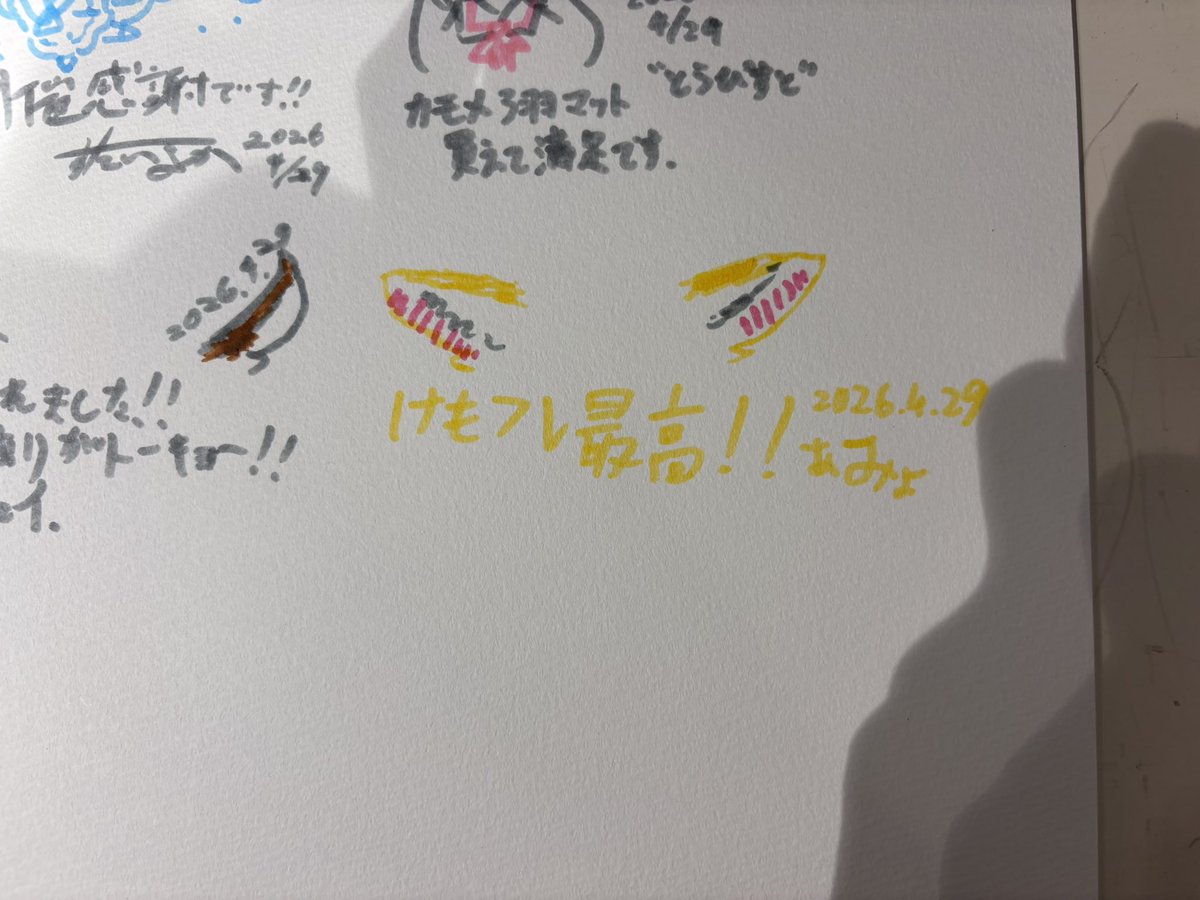 催感謝です!!
2026
4/29
4/29
"とらひすと"
カモメ3羽マット
買えて満足です.
2026.4.29
ました!!
ありがトーキョー!!
けもフレ最高!!
2026.4.29
あみみょ